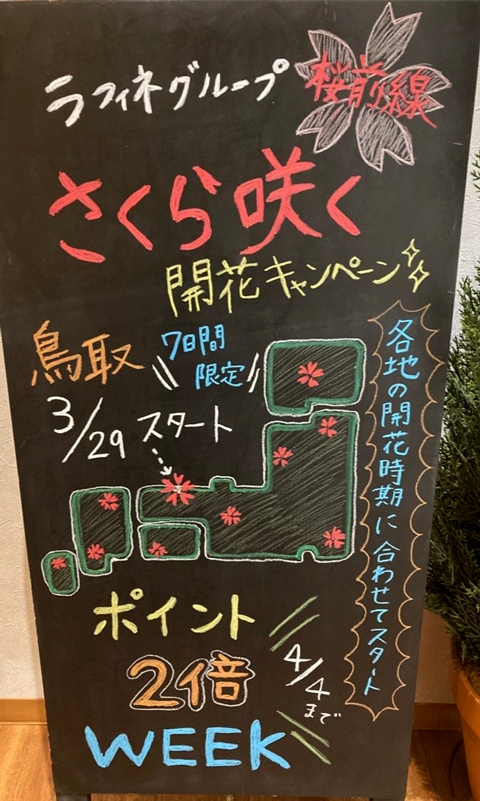 ラフィネグループ
桜前線
さくら咲く
開花キャンペーン
鳥取
7日間
限定
3/29 スタート
各地の開花時期に合わせてスタート
ポイント
2倍
WEEK
4/4
まで